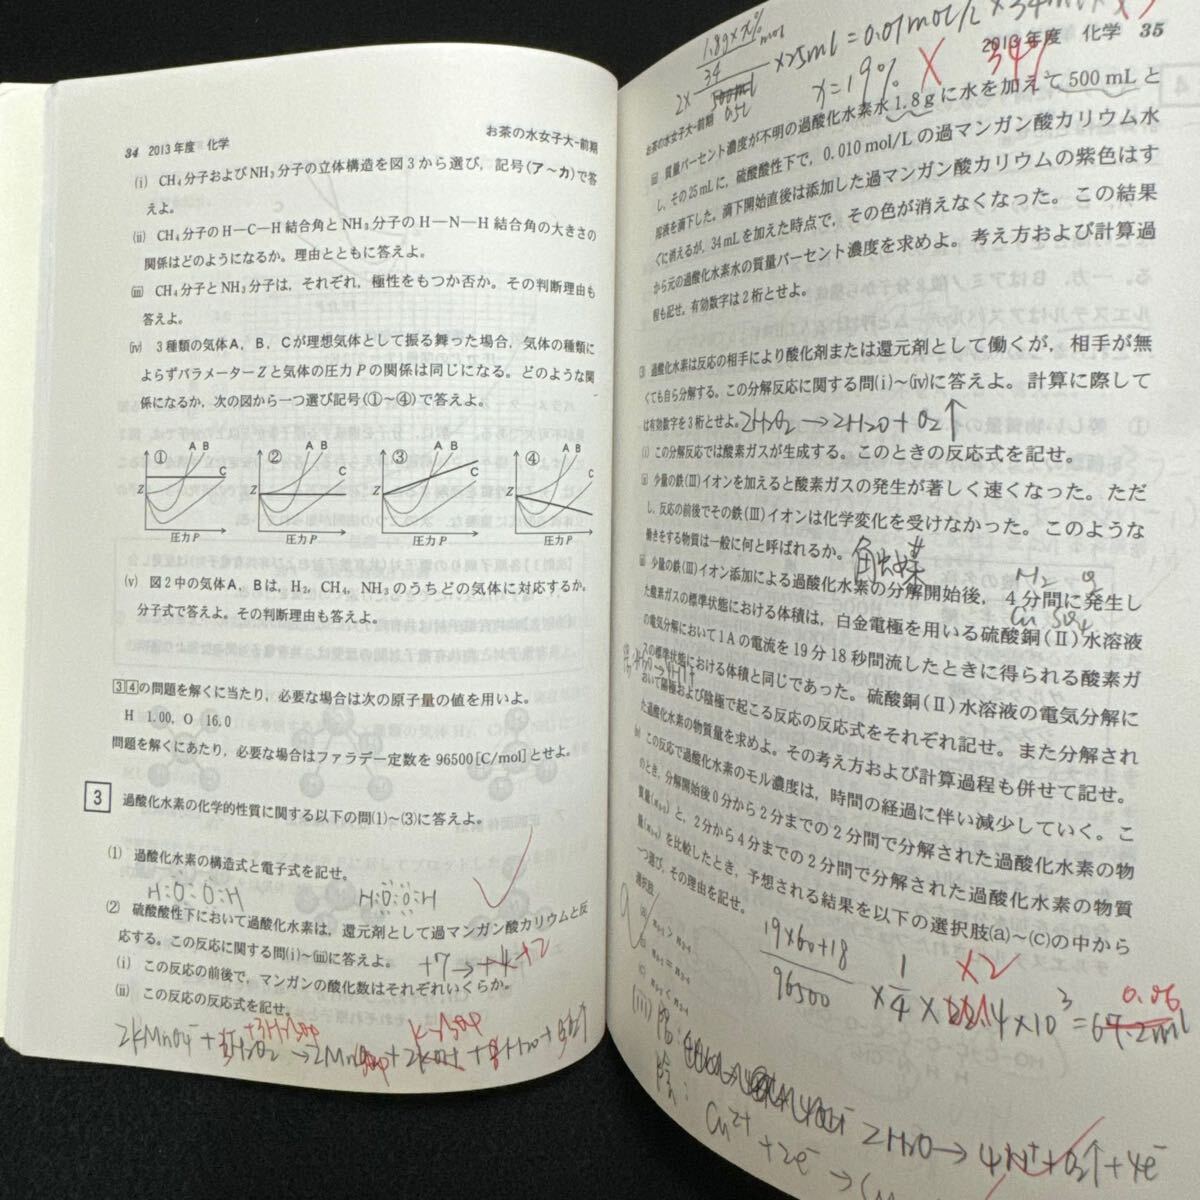 34 2013年度 化学
お茶の水女子大-前期
(i) CH₄分子およびNH₃分子の立体構造を図3から選び，記号(ア〜カ)で答
えよ。
(ii) CH₄分子のH—C—H結合角とNH₃分子のH—N—H結合角の大きさの
関係はどのようになるか。理由とともに答えよ。
(iii) CH₄分子とNH₃分子は，それぞれ，極性をもつか否か。その判断理由も
答えよ。
(iv) 3種類の気体A，B，Cが理想気体として振る舞った場合，気体の種類に
よらずパラメーターZと気体の圧力Pの関係は同じになる。どのような関
係になるか，次の図から一つ選び記号(①〜④)で答えよ。
① A B C Z 圧力P
② A B C Z 圧力P
③ A B C Z 圧力P
④ A B C Z 圧力P
(v) 図2中の気体A，Bは，H₂，CH₄，NH₃のうちどの気体に対応するか。
分子式で答えよ。その判断理由も答えよ。
3 4の問題を解くに当たり，必要な場合は次の原子量の値を用いよ。
H 1.00，O 16.0
問題を解くにあたり，必要な場合はファラデー定数を96500[C/mol]とせよ。
3 過酸化水素の化学的性質に関する以下の問(1)〜(3)に答えよ。
(1) 過酸化水素の構造式と電子式を記せ。
H:O:O:H H:O:O:H
(2) 硫酸酸性下において過酸化水素は，還元剤として過マンガン酸カリウムと反
応する。この反応に関する問(i)〜(iii)に答えよ。
+7→+4+2
(i) この反応の前後で，マンガンの酸化数はそれぞれいくらか。
(ii) この反応の反応式を記せ。
2013年度 化学 35
x=19% × 34%
お茶の水女子大-前期
(iii) 質量パーセント濃度が不明の過酸化水素水1.8gに水を加えて500mLと
し，その25mLに，硫酸酸性下で，0.010mol/Lの過マンガン酸カリウム水
溶液を滴下した。滴下開始直後は添加した過マンガン酸カリウムの紫色はす
ぐに消えるが，34mLを加えた時点で，その色が消えなくなった。この結果
から元の過酸化水素水の質量パーセント濃度を求めよ。考え方および計算過
程も記せ。有効数字は2桁とせよ。
(3) 過酸化水素は反応の相手により酸化剤または還元剤として働くが，相手が無
くても自ら分解する。この分解反応に関する問(i)〜(iv)に答えよ。計算に際して
は有効数字を3桁とせよ。
2H₂O₂→2H₂O+O₂↑
(i) この分解反応では酸素ガスが生成する。このときの反応式を記せ。
(ii) 少量の鉄(III)イオンを加えると酸素ガスの発生が著しく速くなった。ただ
し，反応の前後でその鉄(III)イオンは化学変化を受けなかった。このような
働きをする物質は一般に何と呼ばれるか。
触媒
(iii) 少量の鉄(III)イオン添加による過酸化水素の分解開始後，4分間に発生し
た酸素ガスの標準状態における体積は，白金電極を用いる硫酸銅(II)水溶液
の電気分解において1Aの電流を19分18秒間流したときに得られる酸素ガ
スの標準状態における体積と同じであった。硫酸銅(II)水溶液の電気分解に
おいて陽極および陰極で起こる反応の反応式をそれぞれ記せ。また分解され
た過酸化水素の物質量を求めよ。その考え方および計算過程も併せて記せ。
(iv) この反応で過酸化水素のモル濃度は，時間の経過に伴い減少していく。こ
のとき，分解開始後0分から2分までの2分間で分解された過酸化水素の物
質量(n₀₋₂)と，2分から4分までの2分間で分解された過酸化水素の物質
量(n₂₋₄)を比較したとき，予想される結果を以下の選択肢(a)〜(c)の中から
一つ選び，その理由を記せ。
選択肢：
(a) n₀₋₂ > n₂₋₄
(b) n₀₋₂ = n₂₋₄
(c) n₀₋₂ < n₂₋₄
2H₂O→4H⁺+O₂↑+4e⁻